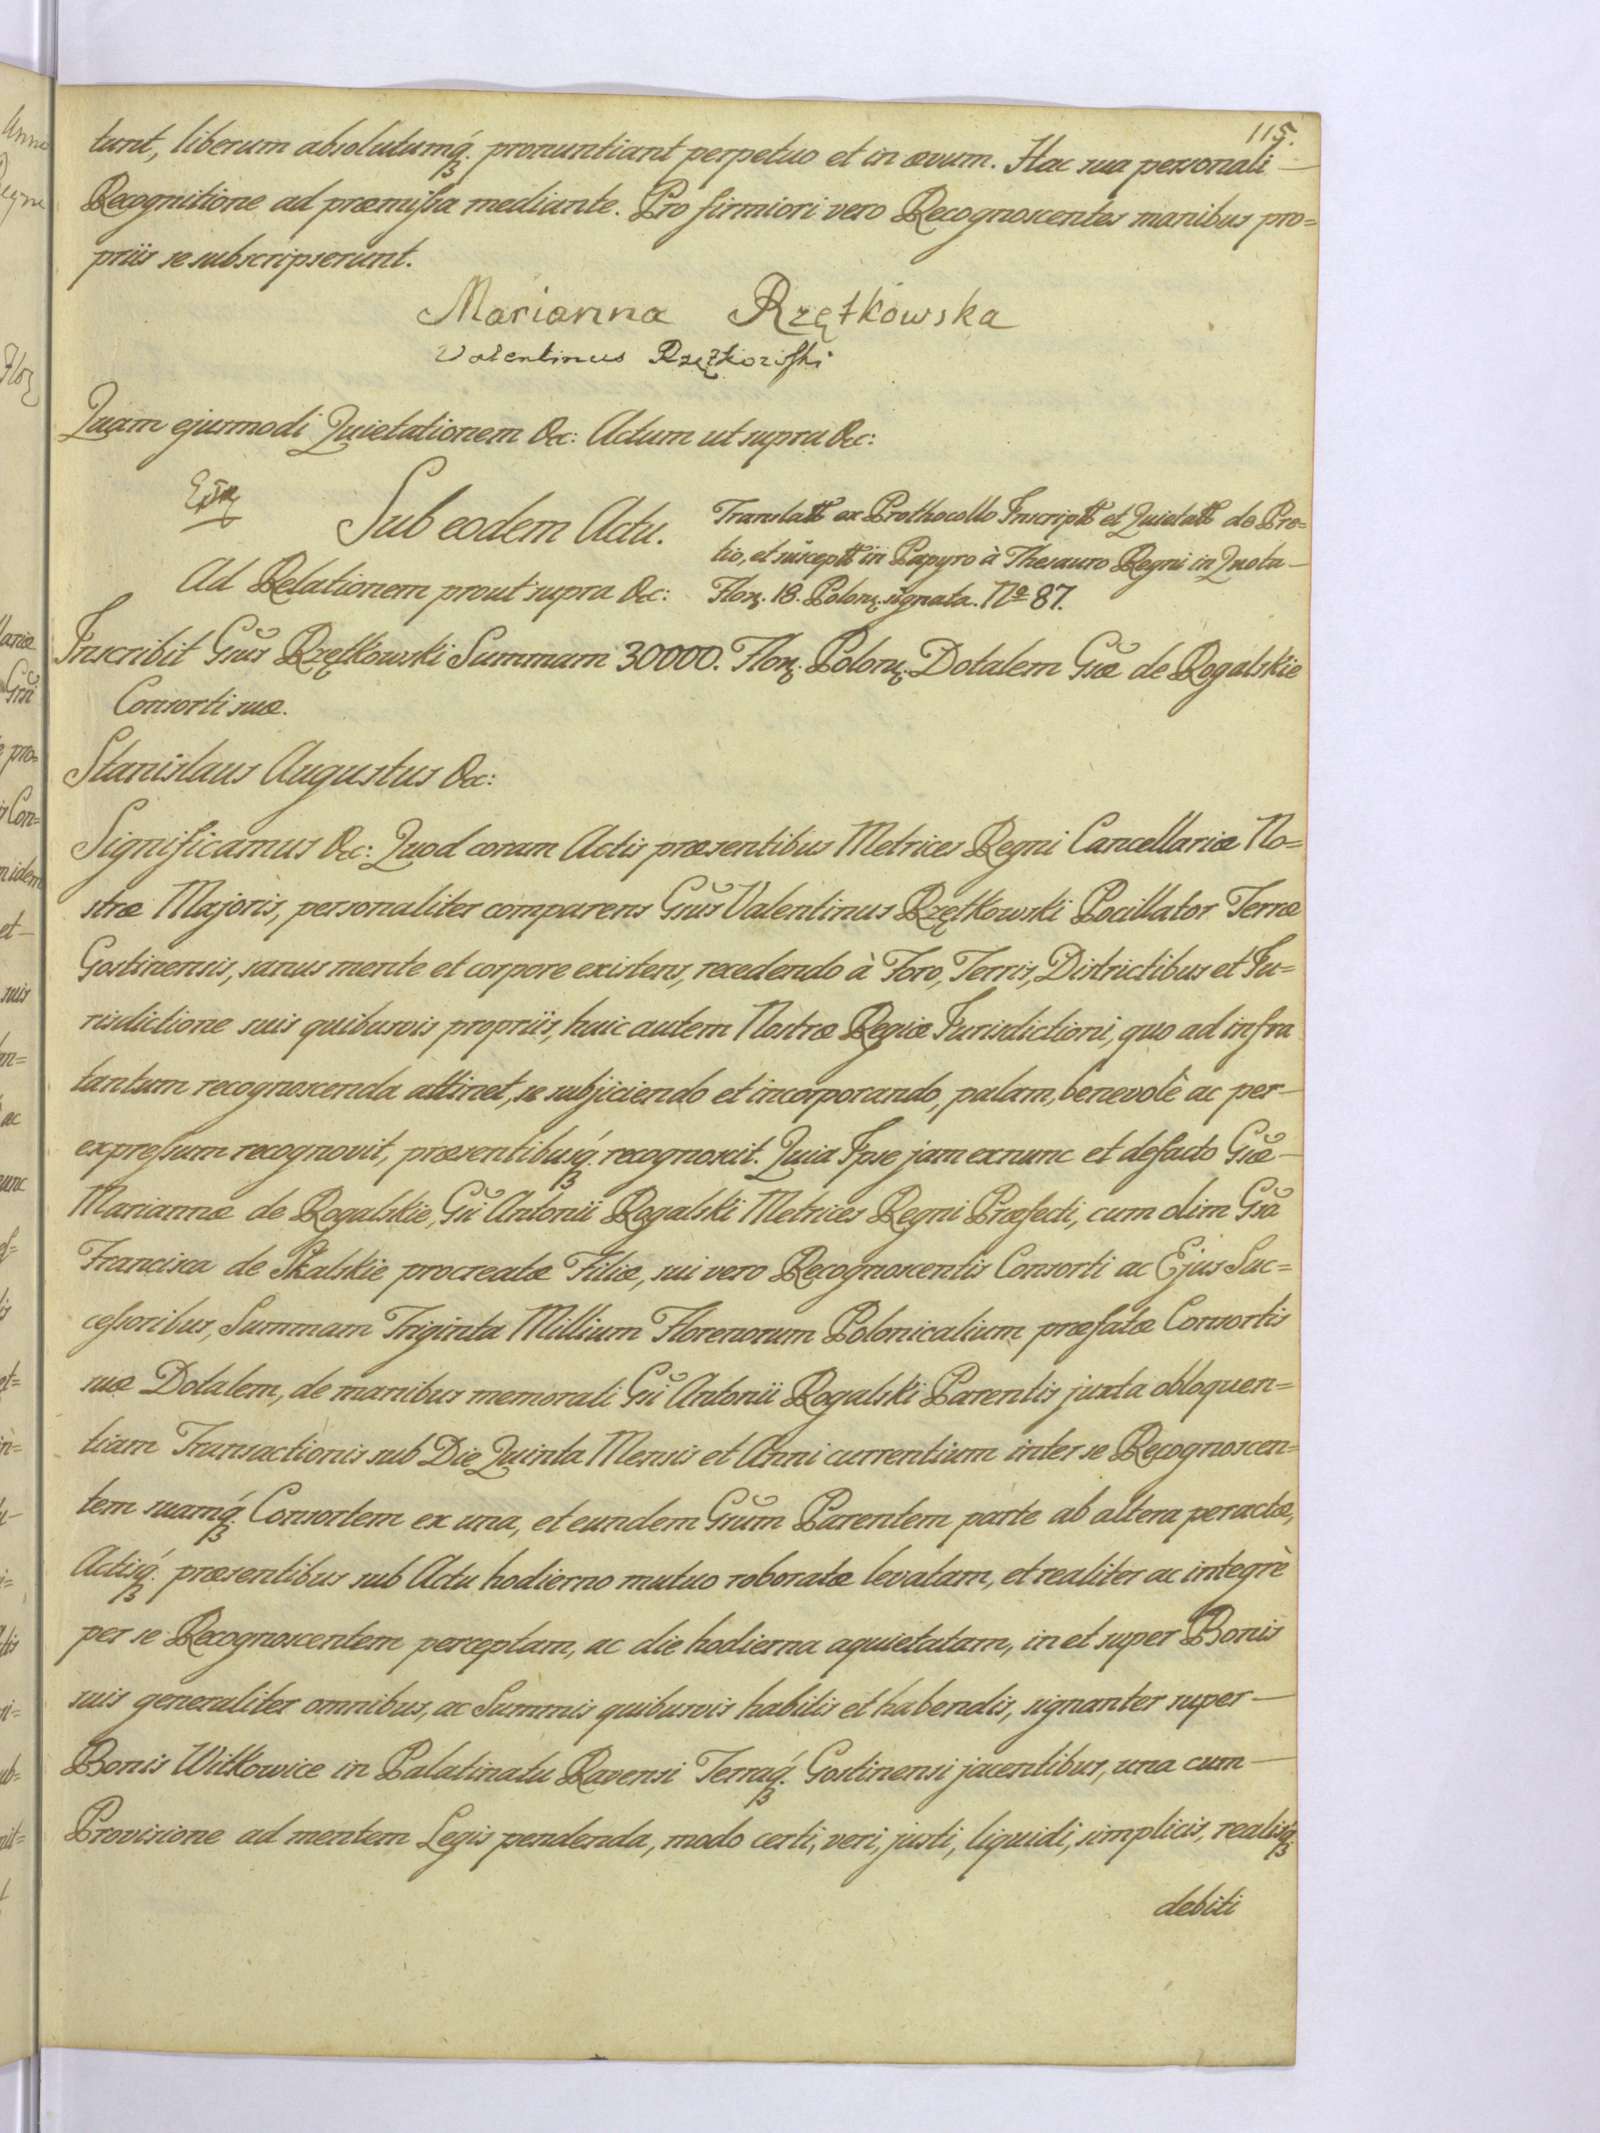 115.
tunt, liberum absolutumq́ꝫ pronuntiant perpetuo et in ævum. Hac sua personali —
Recognitione ad præmißa mediante. Pro firmiori vero Recognoscentes manibus pro=
priis se subscripserunt.
Marianna Rzętkowska
Valentinus Rzętkowski
Quam ejusmodi Quietationem &c: Actum ut supra &c:
Sub eodem Actu.
Translatt ex Prothocollo Inscriptt et Quietatt de Pre=
tio, et susceptt in Papyro à Thesauro Regni in Quota —
Ad Relationem prout supra &c:
Florꝫ. 18. Polonꝫ. signata. No 87.
Inscribit Gsus Rzętkowski Summam 30000. Florꝫ. Polonꝫ. Dotalem Gsæ de Rogalskie
Consorti suæ.
Stanislaus Augustus &c:
Significamus &c: Quod coram Actis præsentibus Metrices Regni Cancellariæ No=
stræ Majoris, personaliter comparens Gsus Valentinus Rzętkowski Pocillator Terræ
Gostinensis, sanus mente et corpore existens, recedendo à Foro, Terris, Districtibus et Ju=
risdictione suis quibusvis propriis, huic autem Nostræ Regiæ Jurisdictioni, quo ad infra
tantum recognoscenda attinet, se subjiciendo et incorporando, palam, benevolè ac per —
expreßum recognovit, præsentibusq́ꝫ recognoscit. Quia Ipse jam exnunc et defacto Gsæ —
Mariannæ de Rogalskie, Gsi Antonii Rogalski Metrices Regni Præfecti, cum olim Gsa
Francisca de Skalskie procreatæ Filiæ, sui vero Recognoscentis Consorti ac Ejus Suc=
ceßoribus, Summam Triginta Millium Florenorum Polonicalium præfatæ Consortis
suæ Dotalem, de manibus memorati Gsi Antonii Rogalski Parentis juxta obloquen=
tiam Transactionis sub Die Quinta Mensis et Anni currentium inter se Recognoscen=
tem suamq́ꝫ Consortem ex una, et eundem Gsum Parentem parte ab altera peractæ,
Actisq́ꝫ præsentibus sub Actu hodierno mutuo roboratæ levatam, et realiter ac integrè
per se Recognoscentem perceptam, ac die hodierna aquietatam, in et super Bonis
suis generaliter omnibus, ac Summis quibusvis habitis et habendis, signanter super —
Bonis Witkowice in Palatinatu Ravensi Terraq́ꝫ Gostinensi jacentibus, una cum —
Provisione ad mentem Legis pendenda, modo certi, veri, justi, liquidi, simplicis, realisq́ꝫ
debiti